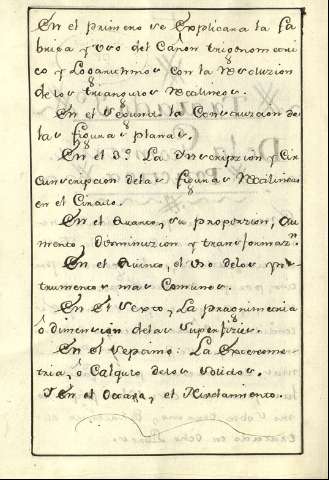 En el primero se explicara la fa
brica y uso del Canon trigonometri
co y Logarithmico con la resoluzion
de los triangulos rectilineos.
En el segundo la Construccion de
las figuras planas.
En el 3.º La Inscripzion y Cir
cunscripcion de las figuras rectilineas
en el Circulo.
En el Quarto, su proporzion, Au
mento, Disminuzion y transformaz.ⁿ
En el Quinto, el uso de los yns
trumentos mas Comunes.
En el Sexto, La
ó dimension de las Superfizies.
En el Septimo: La Estereome
tria, ó Calculo de los Solidos.
Y en el Octavo, el